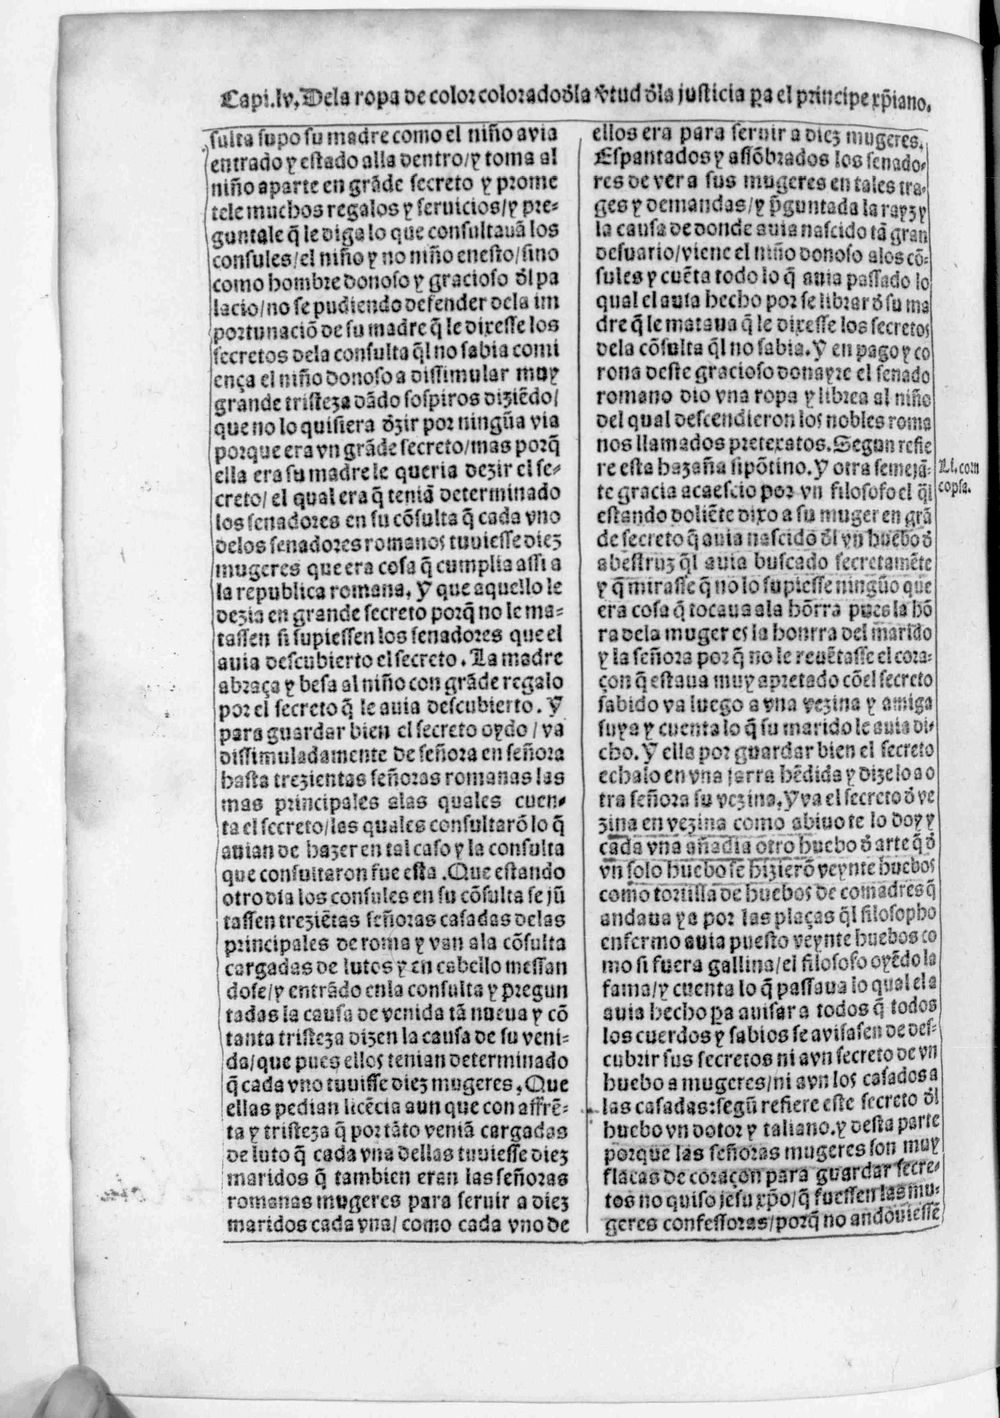 Capi.lv. Dela ropa de color colorado d̃la ṽtud d̃la justicia p̱a el principe xp̃iano.
sulta supo su madre como el niño auia
entrado y estado alla dentro/y toma al
niño aparte en grãde secreto y prome
tele muchos regalos y seruicios/y pre-
guntale q̃ le diga lo que consultauã los
consules/el niño y no niño enesto/sino
como hombre donoso y gracioso d̃l pa
lacio/no se pudiendo defender dela im
portunaciõ de su madre q̃ le dixesse los
secretos dela consulta q̃l no sabia comi
ença el niño donoso a dissimular muy
grande tristeza dãdo sospiros diziẽdo/
que no lo quisiera d̃zir por ningũa via
porque era vn grãde secreto/mas porq̃
ella era su madre le queria dezir el se-
creto/el qual era q̃ teniã determinado
los senadores en su cõsulta q̃ cada vno
delos senadores romanos tuuiesse diez
mugeres que era cosa q̃ cumplia assi a
la republica romana. Y que aquello le
dezia en grande secreto porq̃ no le ma-
tassen si supiessen los senadores que el
auia descubierto el secreto. La madre
abraça y besa al niño con grãde regalo
por el secreto q̃ le auia descubierto. Y
para guardar bien el secreto oydo/va
dissimuladamente de señora en señora
hasta trezientas señoras romanas las
mas principales alas quales cuen-
ta el secreto/las quales consultarõ lo q̃
auian de hazer en tal caso y la consulta
que consultaron fue esta. Que estando
otro dia los consules en su cõsulta se jũ
tassen treziẽtas señoras casadas delas
principales de roma y van ala cõsulta
cargadas de lutos y en cabello messan
dose/y entrãdo enla consulta y pregun
tadas la causa de venida tã nueua y cõ
tanta tristeza dizen la causa de su veni-
da/que pues ellos tenian determinado
q̃ cada vno tuuisse diez mugeres. Que
ellas pedian licẽcia aun que con affrẽ-
ta y tristeza q̃ por tãto veniã cargadas
de luto q̃ cada vna dellas tuuiesse diez
maridos q̃ tambien eran las señoras
romanas mugeres para seruir a diez
maridos cada vna/como cada vno de
ellos era para seruir a diez mugeres.
Espantados y assõbrados los senado-
res de ver a sus mugeres en tales tra-
ges y demandas/y p̃guntada la rayz y
la causa de donde auia nascido tã gran
desuario/viene el niño donoso alos cõ-
sules y cuẽta todo lo q̃ auia passado lo
qual el auia hecho por se librar d̃ su ma
dre q̃ le mataua q̃ le dixesse los secretos
dela cõsulta q̃l no sabia. Y en pago y co
rona deste gracioso donayre el senado
romano dio vna ropa y librea al niño
del qual descendieron los nobles roma
nos llamados pretextatos. Segun refie
re esta hazaña sipõtino. Y otra semejã-
te gracia acaescio por vn filosofo el q̃l
estando doliẽte dixo a su muger en grã
de secreto q̃ auia nascido d̃l vn huebo d̃
abestruz q̃l auia buscado secretamẽte
y q̃ mirasse q̃ no lo supiesse ningũo que
era cosa q̃ tocaua ala hõrra pues la hõ
ra dela muger es la honrra del marido
y la señora por q̃ no le reuẽtasse el cora-
çon q̃ estaua muy apretado cõel secreto
sabido va luego a vna vezina y amiga
suya y cuenta lo q̃ su marido le auia di-
cho. Y ella por guardar bien el secreto
echalo en vna jarra hẽdida y dizelo a o
tra señora su vezina. Y va el secreto d̃ ve
zina en vezina como abiuo te lo doy y
cada vna añadia otro huebo d̃ arte q̃ d̃
vn solo huebo se hizierõ veynte huebos
como tortilla de huebos de comadres q̃
andaua ya por las plaças q̃l filosopho
enfermo auia puesto veynte huebos co
mo si fuera gallina/el filosofo oyẽdo la
fama/y cuenta lo q̃ passaua lo qual el a
auia hecho p̱a auisar a todos q̃ todos
los cuerdos y sabios se auisasen de des-
cubrir sus secretos ni avn secreto de vn
huebo a mugeres/ni avn los casados a
las casadas:segũ refiere este secreto d̃l
huebo vn dotor y taliano. y desta parte
porque las señoras mugeres son muy
flacas de coraçon para guardar secre-
tos no quiso jesu xp̃o/q̃ fuessen las mu-
geres confessoras/porq̃ no andouiessẽ
Li. corn
copia.